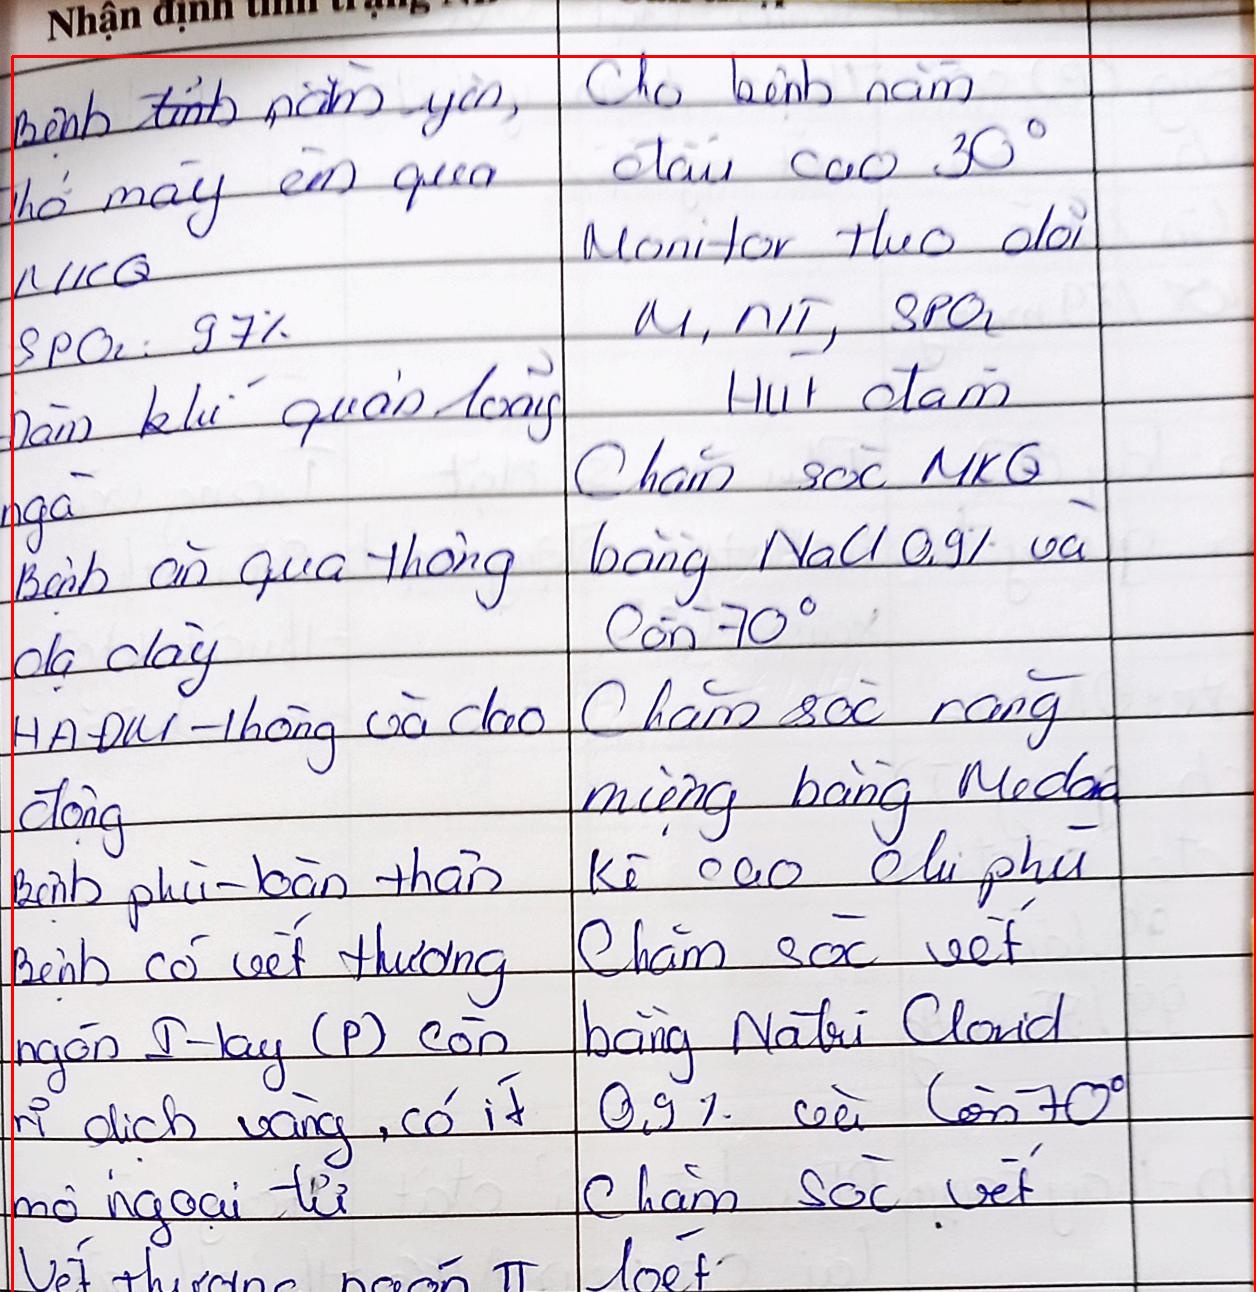 Nhận định tình trạng
Bệnh tỉnh nằm yên,
thở máy êm qua
MKQ
SPO₂: 97%
Đàm khí quản loãng
ngà
Bệnh ăn qua thông
dạ dày
HA ĐM thông và dao
động
Bệnh phù toàn thân
Bệnh có vết thương
ngón I tay (P) còn
rỉ dịch vàng, có ít
mô ngoại tử
Vết thương ngón II
Cho bệnh nằm
đầu cao 30°
Monitor theo dõi
M, NT, SPO₂
Hút đàm
Chăm sóc MKQ
bằng NaCl 0,9% và
Cồn 70°
Chăm sóc răng
miệng bằng
Kê cao chi phù
Chăm sóc vết
bằng Natri Clorid
0,9% và Cồn 70°
Chăm sóc vết
loét